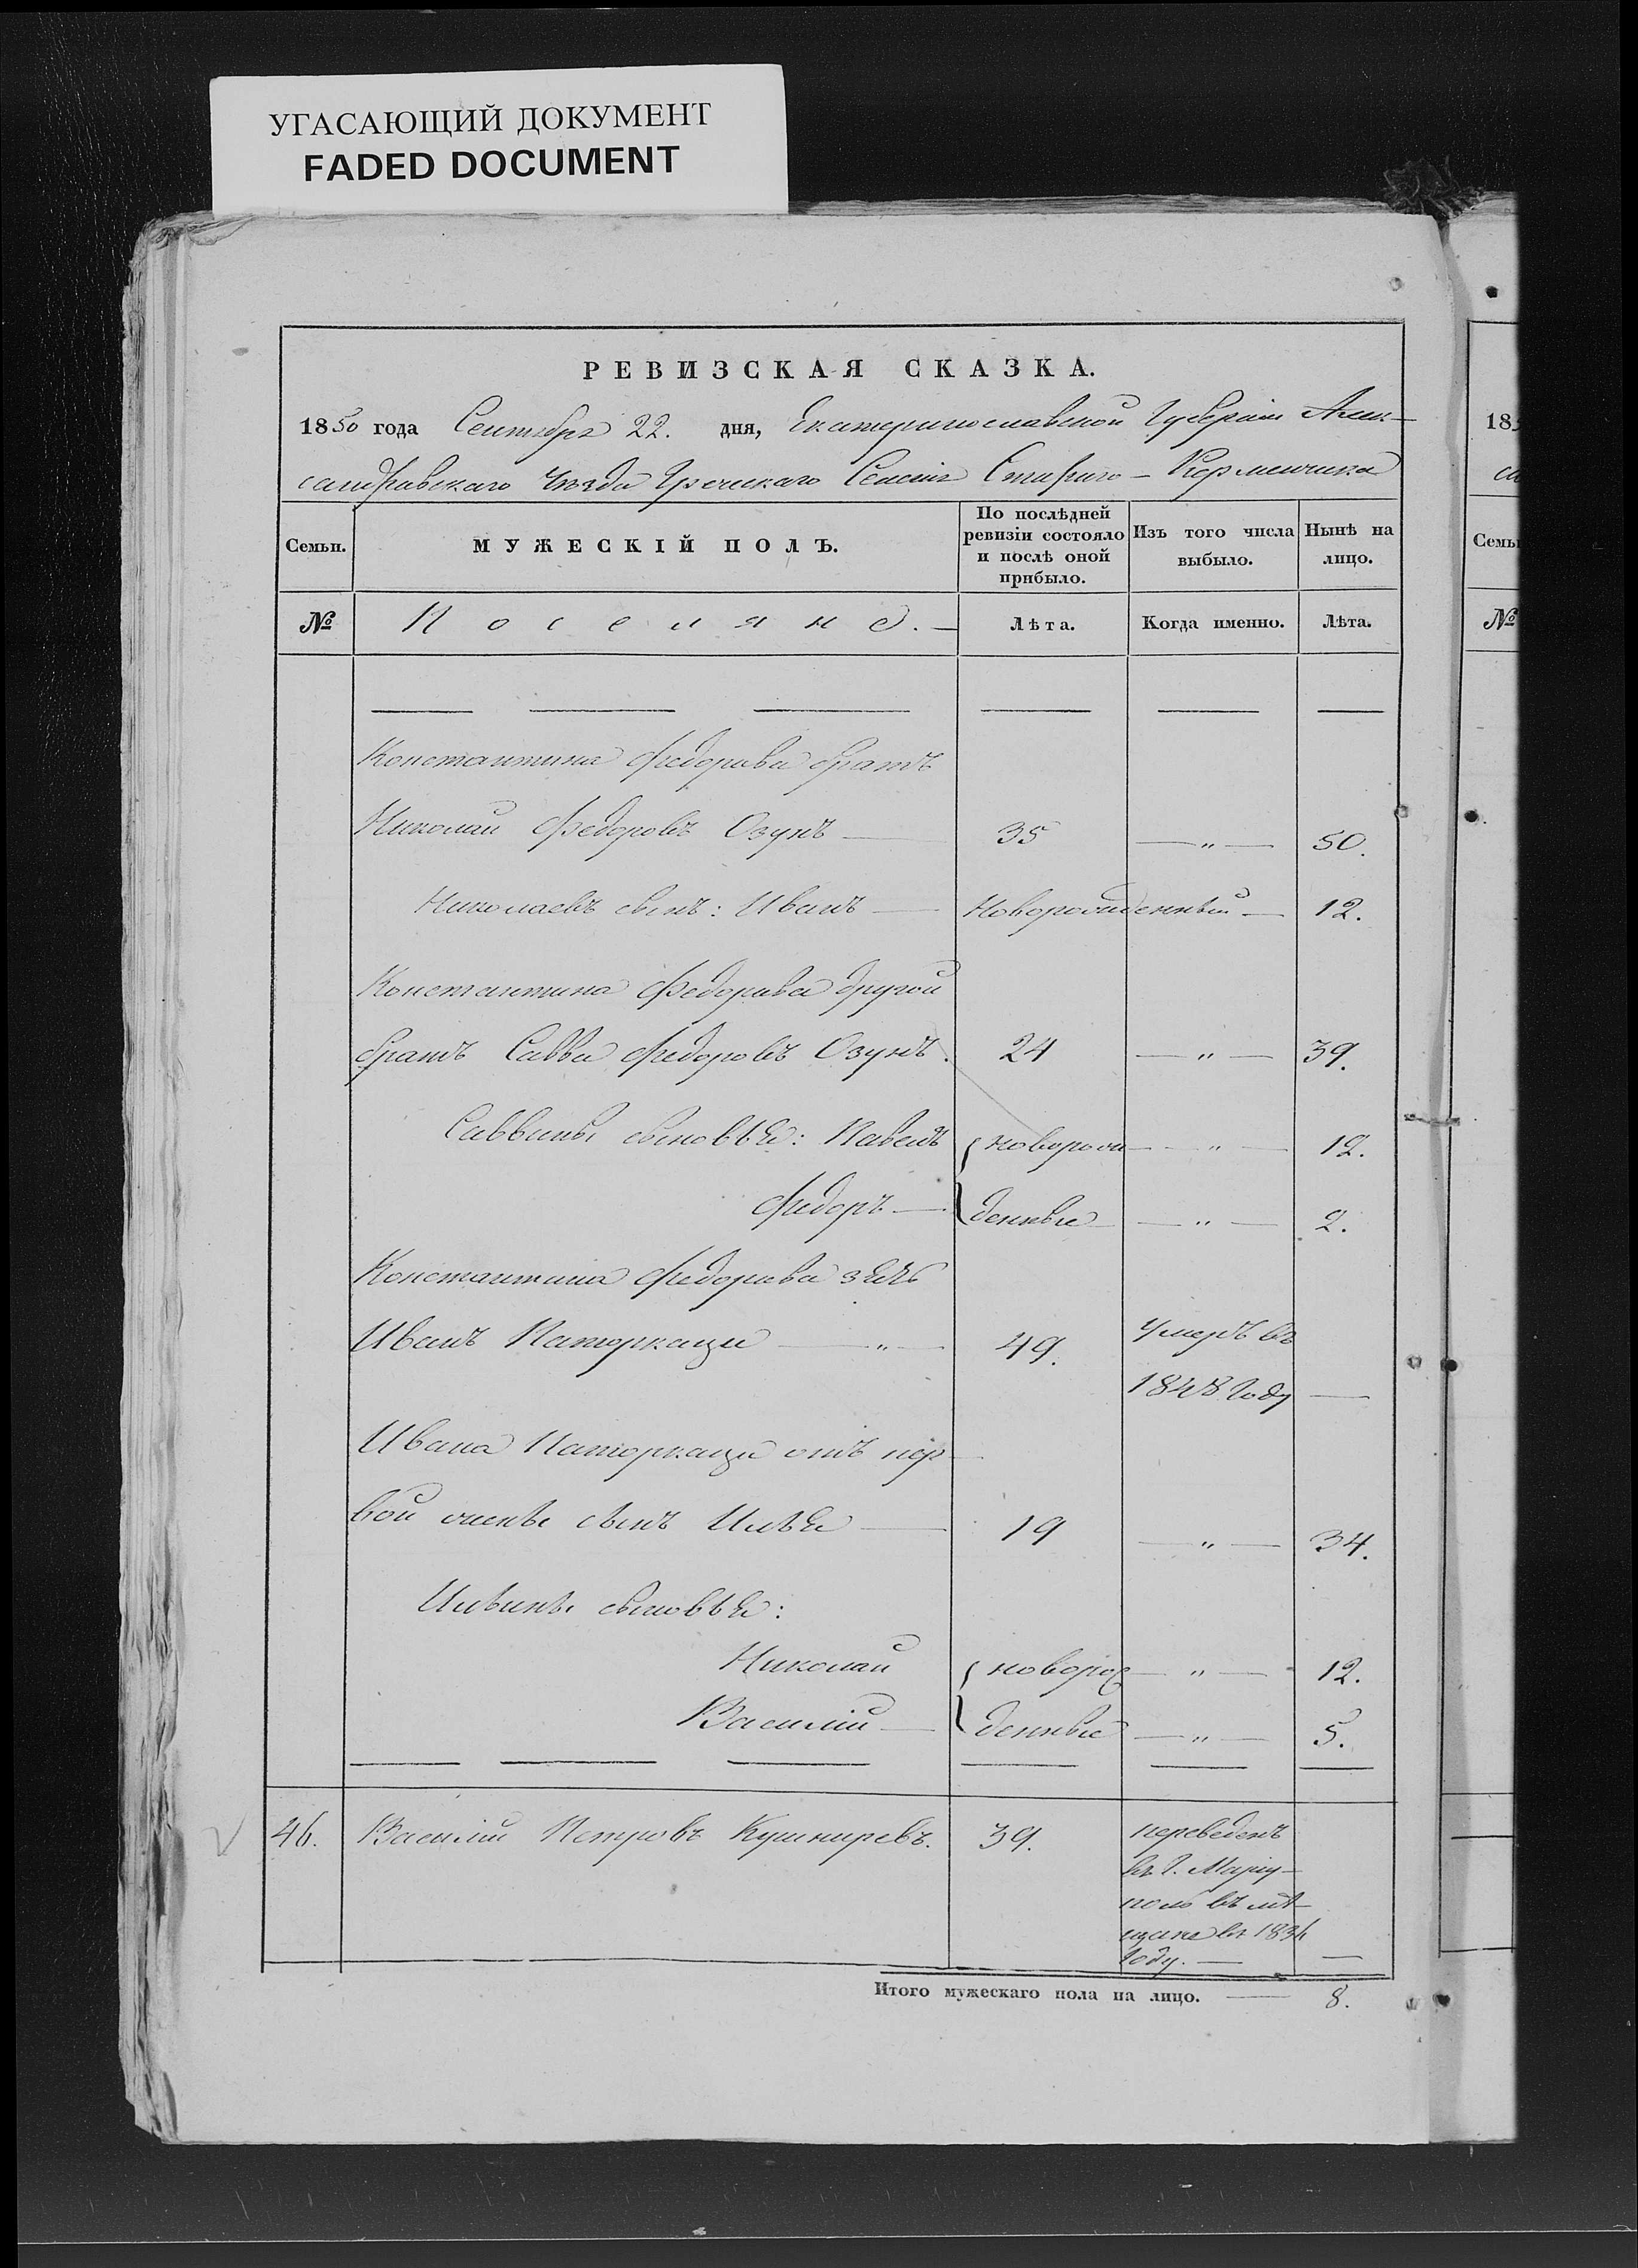 УГАСАЮЩИЙ ДОКУМЕНТ
FADED DOCUMENT
РЕВИЗСКАЯ СКАЗКА.
1850 года Сентября 22. дня, Екатеринославской Губерніи Алек-
сандровскаго Уѣзда Греческаго Селенія Стараго-Керменчика
Семьи. МУЖЕСКІЙ ПОЛЪ. По послѣдней ревизіи состояло и послѣ оной прибыло. Изъ того числа выбыло. Нынѣ на лицо.
№ Поселяне. — Лѣта. Когда именно. Лѣта.
Константина Федорова братъ
Николай Федоровъ Озунъ — 35 — " — 50.
Николаевъ сынъ: Иванъ — Новорожденный — 12.
Константина Федорова другой
братъ Савва Федоровъ Озунъ. 24 — " — 39.
Саввины сыновья: Павелъ новорож — " — 12.
Федоръ — денные — " — 2.
Константина Федорова зять
Иванъ Паторкаци — " — 49. Умеръ въ
1848 году —
Ивана Паторкаци отъ пер-
вой жены сынъ Илья — 19 — " — 34.
Ильины сыновья:
Николай новорож — " — 12.
Василій — денные — " — 5.
46. Василій Петровъ Кушниревъ. 39. переведенъ
въ г. Маріу-
поль въ мѣ-
щане въ 183
году. — —
Итого мужескаго пола на лицо. — 8.
185
са
Семьи
№